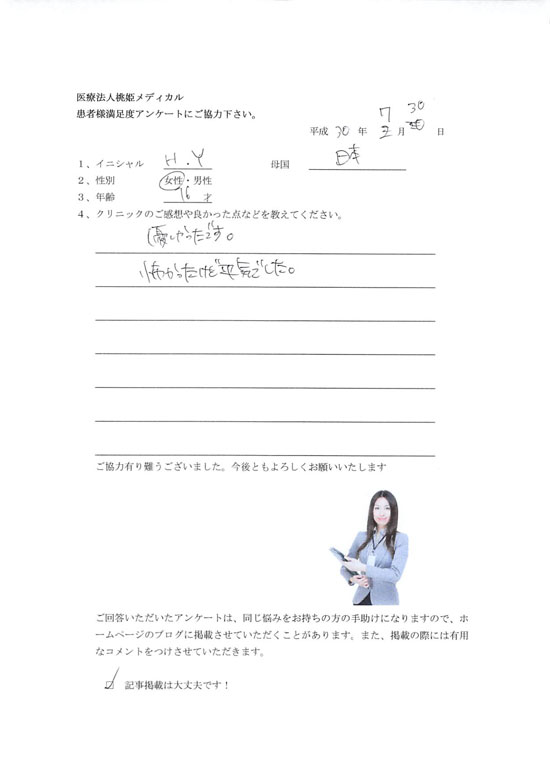 医療法人桃姫メディカル
患者様満足度アンケートにご協力下さい。
7 30
平成 30 年 月 日
1、イニシャル H.Y 母国 日本
2、性別 女性・男性
3、年齢 16 才
4、クリニックのご感想や良かった点などを教えてください。
優しかったです。
怖かったけど平気でした。
ご協力有り難うございました。今後ともよろしくお願いいたします
ご回答いただいたアンケートは、同じ悩みをお持ちの方の手助けになりますので、ホ
ームページのブログに掲載させていただくことがあります。また、掲載の際には有用
なコメントをつけさせていただきます。
記事掲載は大丈夫です！